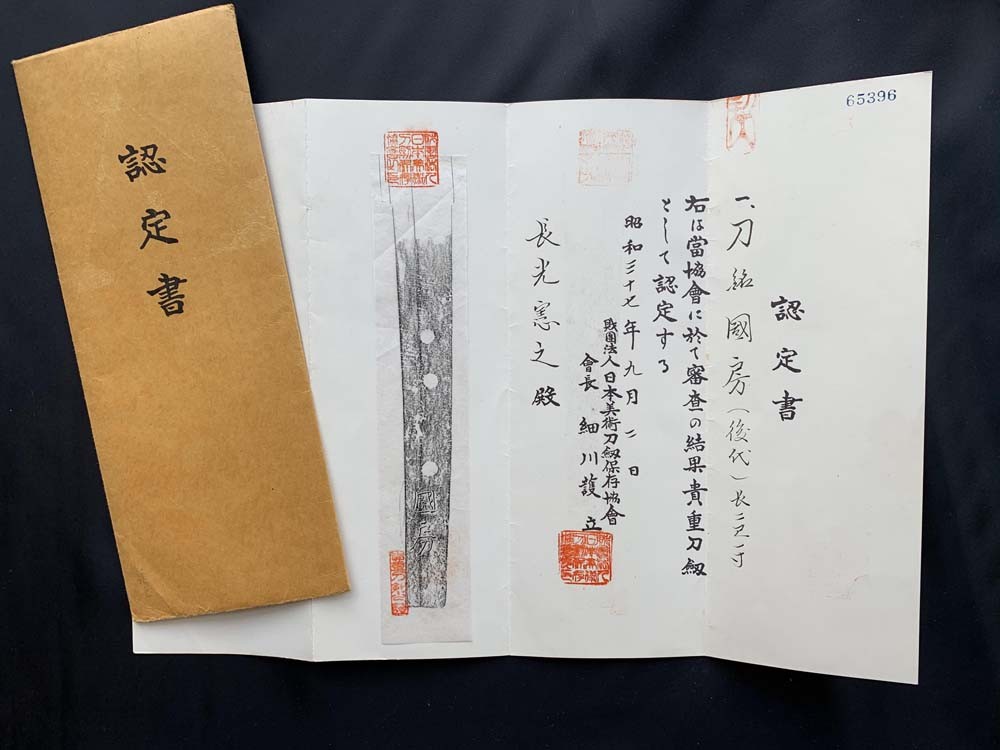 認定書
65396
認定書
一、刀 銘 國房(後代)長二尺一寸
右は當協會に於て審査の結果貴重刀劔
として認定する
昭和三十七年九月二日
財團法人日本美術刀劔保存協會
會長 細川護立
長光憲之殿
國房